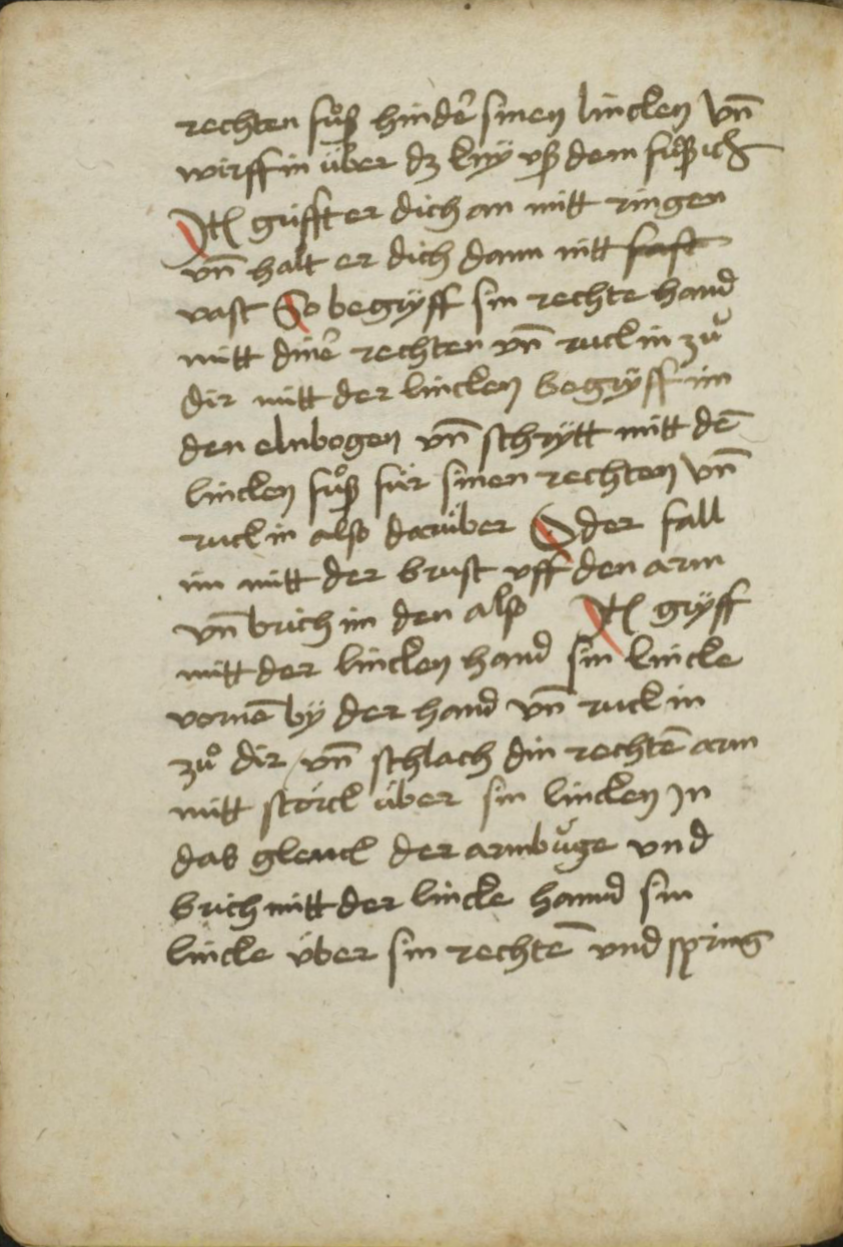 rechten fůß hinder̄ sinen lincken vn̄
wirff in über dz kny̋ vß dem fůß ich
Itl grifft er dich an mitt ringen
vn̄ halt er dich dann nitt fast
vast So begry̋ff sin rechte hand
mitt dine͛ rechten vn̄ ruck in zů
dir mitt der lincken begry̋ff im
den elnbogen vn̄ schry̋tt mitt dē
lincken fůß für sinen rechten vn̄
ruck in also darüber Oder fall
im mitt der brust vff den arm
vn̄ brich im den also Itl gry̋ff
mitt der lincken hand sin lincke
vornē by̋ der hand vn̄ ruck in
zů dir vn̄ schlach din rechtē arm
mitt störck über sin lincken In
das glenck der armbüge vnd
brich mitt der lincke hannd sin
lincke über sin rechtē vnd spring